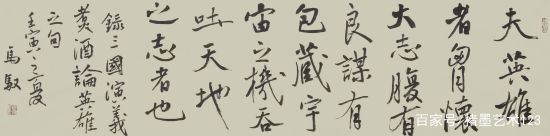 夫英雄
者胷懷
大志腹有
良謀有
包藏宇
宙之機吞
吐天地
之志者也
錄三國演義
煑酒論英雄
之句
壬寅之夏
馬馭
百家号/墨艺术123